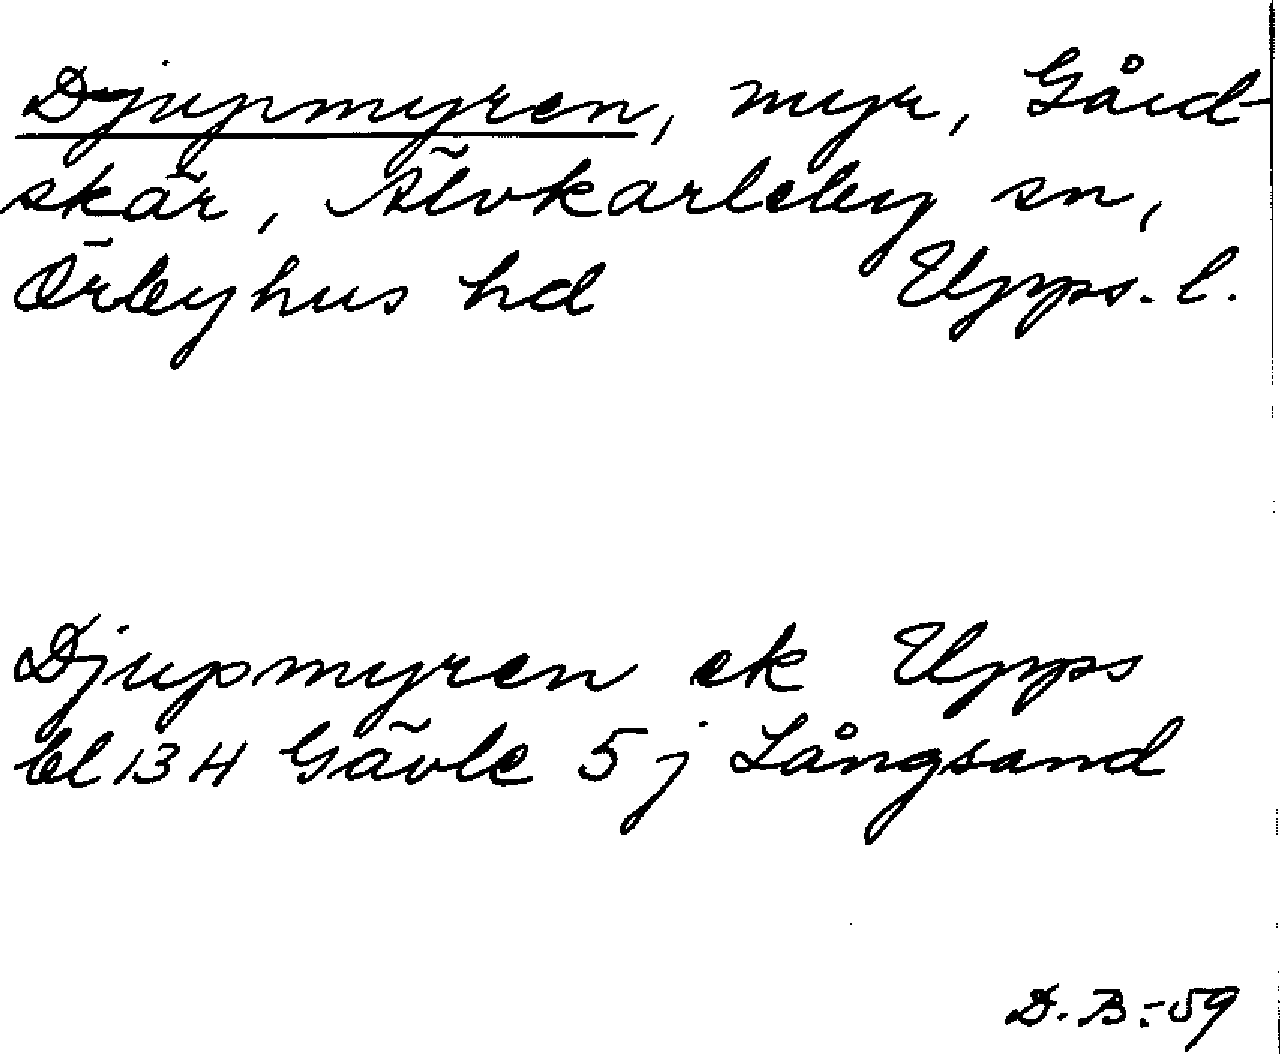 Djupmyren, myr, Gård-
skär, Älvkarleby sn,
Örbyhus hd Upps. l.
Djupmyren ek Upps
bl 13 H Gävle 5 j Långsand
D. B. -59